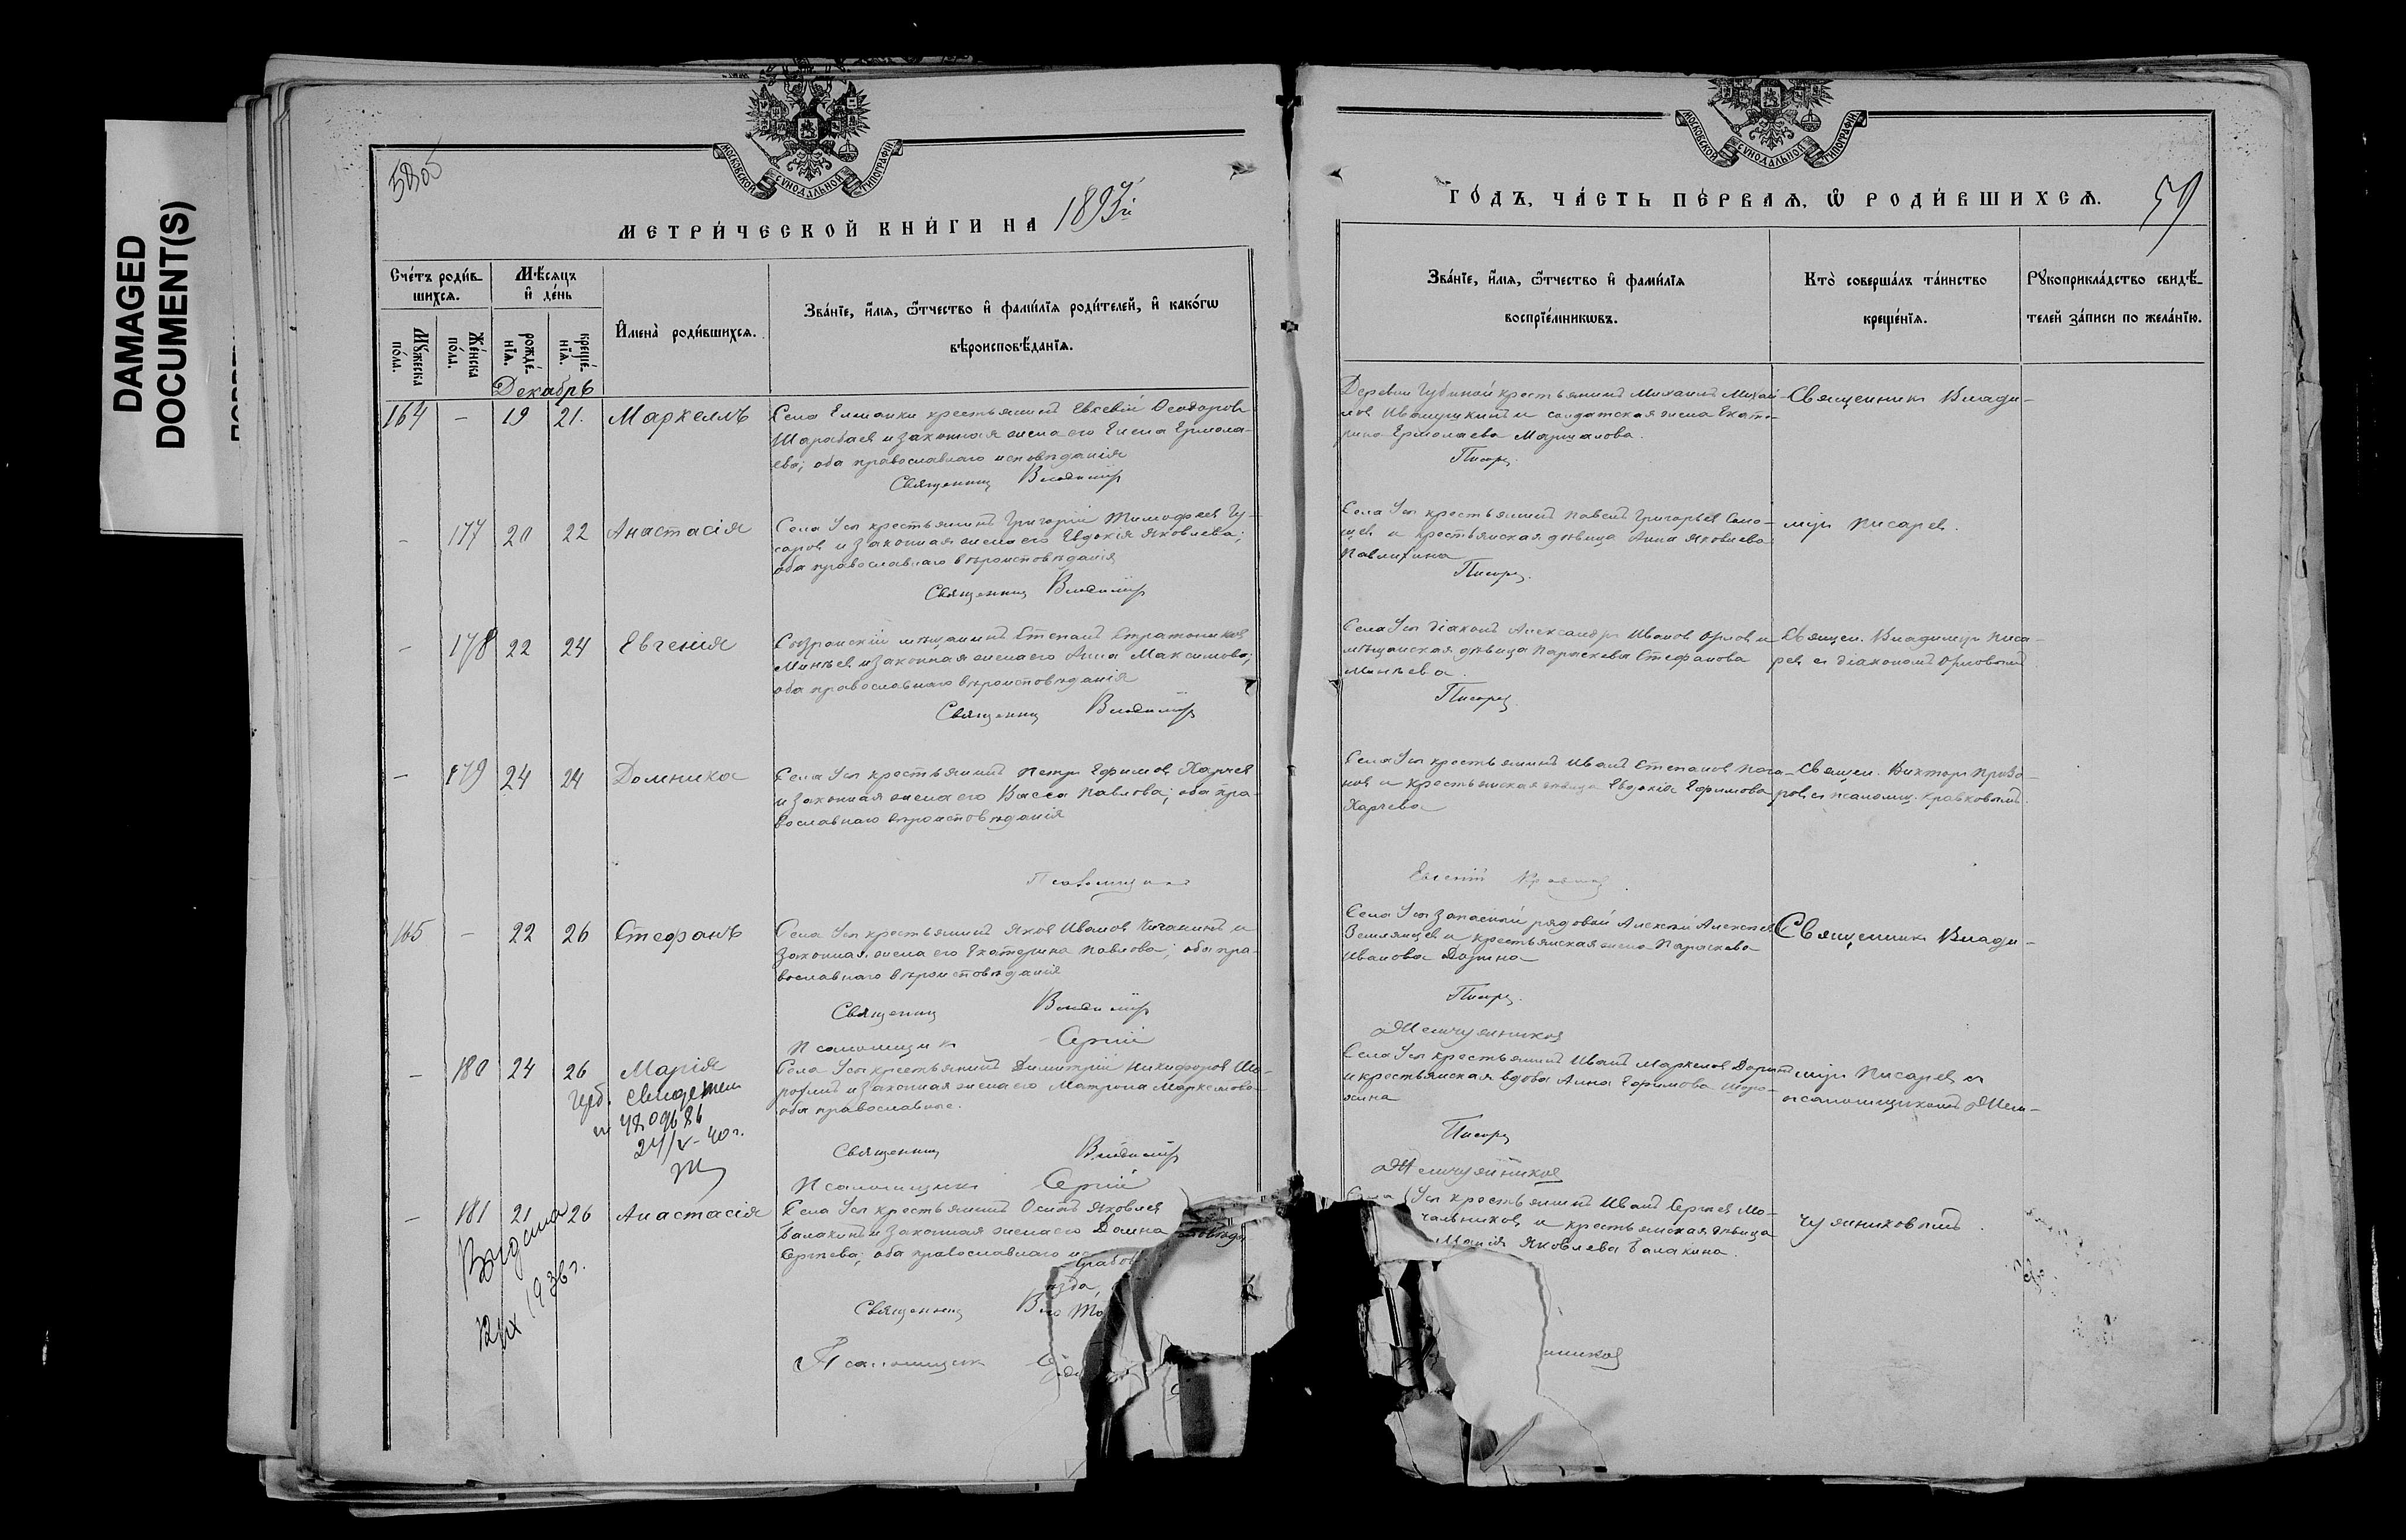 DAMAGED
DOCUMENT(S)
МОСКОВСКОЙ СѴНОДАЛЬНОЙ ТИПОГРАФІИ
5805
МЕТРИ́ЧЕСКОЙ КНИ́ГИ НА 1893й
Сче́тъ роди́в-
шихсѧ.
Мѣ́сѧцъ
и҆ де́нь
Мꙋ́жеска по́ла.
Же́нска по́ла.
рожде́-нїѧ.
креще́-нїѧ.
И҆мена̀ роди́вшихсѧ.
Зва́нїе, и҆́мѧ, ѻ҆́тчество и҆ фами́лїѧ роди́телей, и҆ како́гѡ
вѣроисповѣ́данїѧ.
Декабрь
164 — 19 21. Маркеллъ
Села Елшанки крестьянинъ Евсевій Ѳеодоровъ
и законная жена его Елена Ермола-
ева; оба православнаго исповѣданія
Священникъ Владиміръ
— 177 20 22 Анастасія
Села Усы крестьянинъ Григорій Тимофеев Гу-
саров и законная жена его Евдокія Яковлева;
оба православнаго вѣроисповѣданія
Священникъ Владиміръ
— 178 22 24 Евгенія
Сызранскій мѣщанинъ Степанъ Стратоников
Минѣев и законная жена его Анна Максимова;
оба православнаго вѣроисповѣданія
Священникъ Владиміръ
— 179 24 24 Домника
Села Усы крестьянинъ Петръ Ефимов Харчев
и законная жена его Васса Павлова; оба пра-
вославнаго вѣроисповѣданія
Псаломщикъ
165 — 22 26 Стефанъ
Села Усы крестьянинъ Яков Иванов Чичакинъ и
законная жена его Екатерина Павлова; оба пра-
вославнаго вѣроисповѣданія
Священникъ Владиміръ
Псаломщикъ Сергій
— 180 24 26 Марія
Села Усы крестьянинъ Димитрій Никифоров Шо-
рохинъ и законная жена его Матрона Маркелова
оба православные.
24/V-40 г.
Священникъ Владиміръ
Псаломщикъ Сергій
— 181 21 26 Анастасія
Села Усы крестьянинъ Осипъ Яковлев
Балакинъ и законная жена его Домна
Сергѣева; оба православнаго
Выдана
1936 г.
Священникъ
Псаломщикъ
ГО́ДЪ, ЧА́СТЬ ПЕ́РВАѦ, Ѡ҆ РОДИ́ВШИХСѦ.
59
Зва́нїе, и҆́мѧ, ѻ҆́тчество и҆ фами́лїѧ
воспрїе́мникѡвъ.
Кто̀ соверша́лъ та́инство
креще́нїѧ.
Рꙋкоприкла́дство свидѣ́-
телей за́писи по жела́нїю.
Деревни Губиной крестьянинъ Михаилъ Михай-
лов Ивашушкинъ и солдатская жена Екате-
рина Ермолаева Маршалова.
Писарев
Священникъ Влади-
Села Усы крестьянинъ Павелъ Григорьев
и крестьянская дѣвица Анна Яковлева
Павлихина
Писарев
міръ Писарев.
Села Усы діаконъ Александръ Иванов Орлов и
мѣщанская дѣвица Параскева Стефанова
Минѣева.
Писарев
Священ. Владиміръ Писа-
рев съ діакономъ Орловымъ
Села Усы крестьянинъ Иванъ Степанов
и крестьянская дѣвица Евдокія Ефимова
Харчева
Евгеній
Священ. Викторъ
псаломщ. Кравковымъ.
Села Усы запасный рядовой Алексѣй Алексѣев
Землянцев и крестьянская жена Параскева
Иванова Дорина
Писарев
Жемчужников
Священникъ Влади-
Села Усы крестьянинъ Иванъ Маркелов Доринъ
и крестьянская вдова Анна Ефимова Шоро-
хина
Писарев
Жемчужников
міръ Писарев съ
псаломщикомъ Жем-
Села Усы крестьянинъ Иванъ Сергѣев Мо-
чальников и крестьянская дѣвица
Марія Яковлева Балакина.
чужниковымъ.